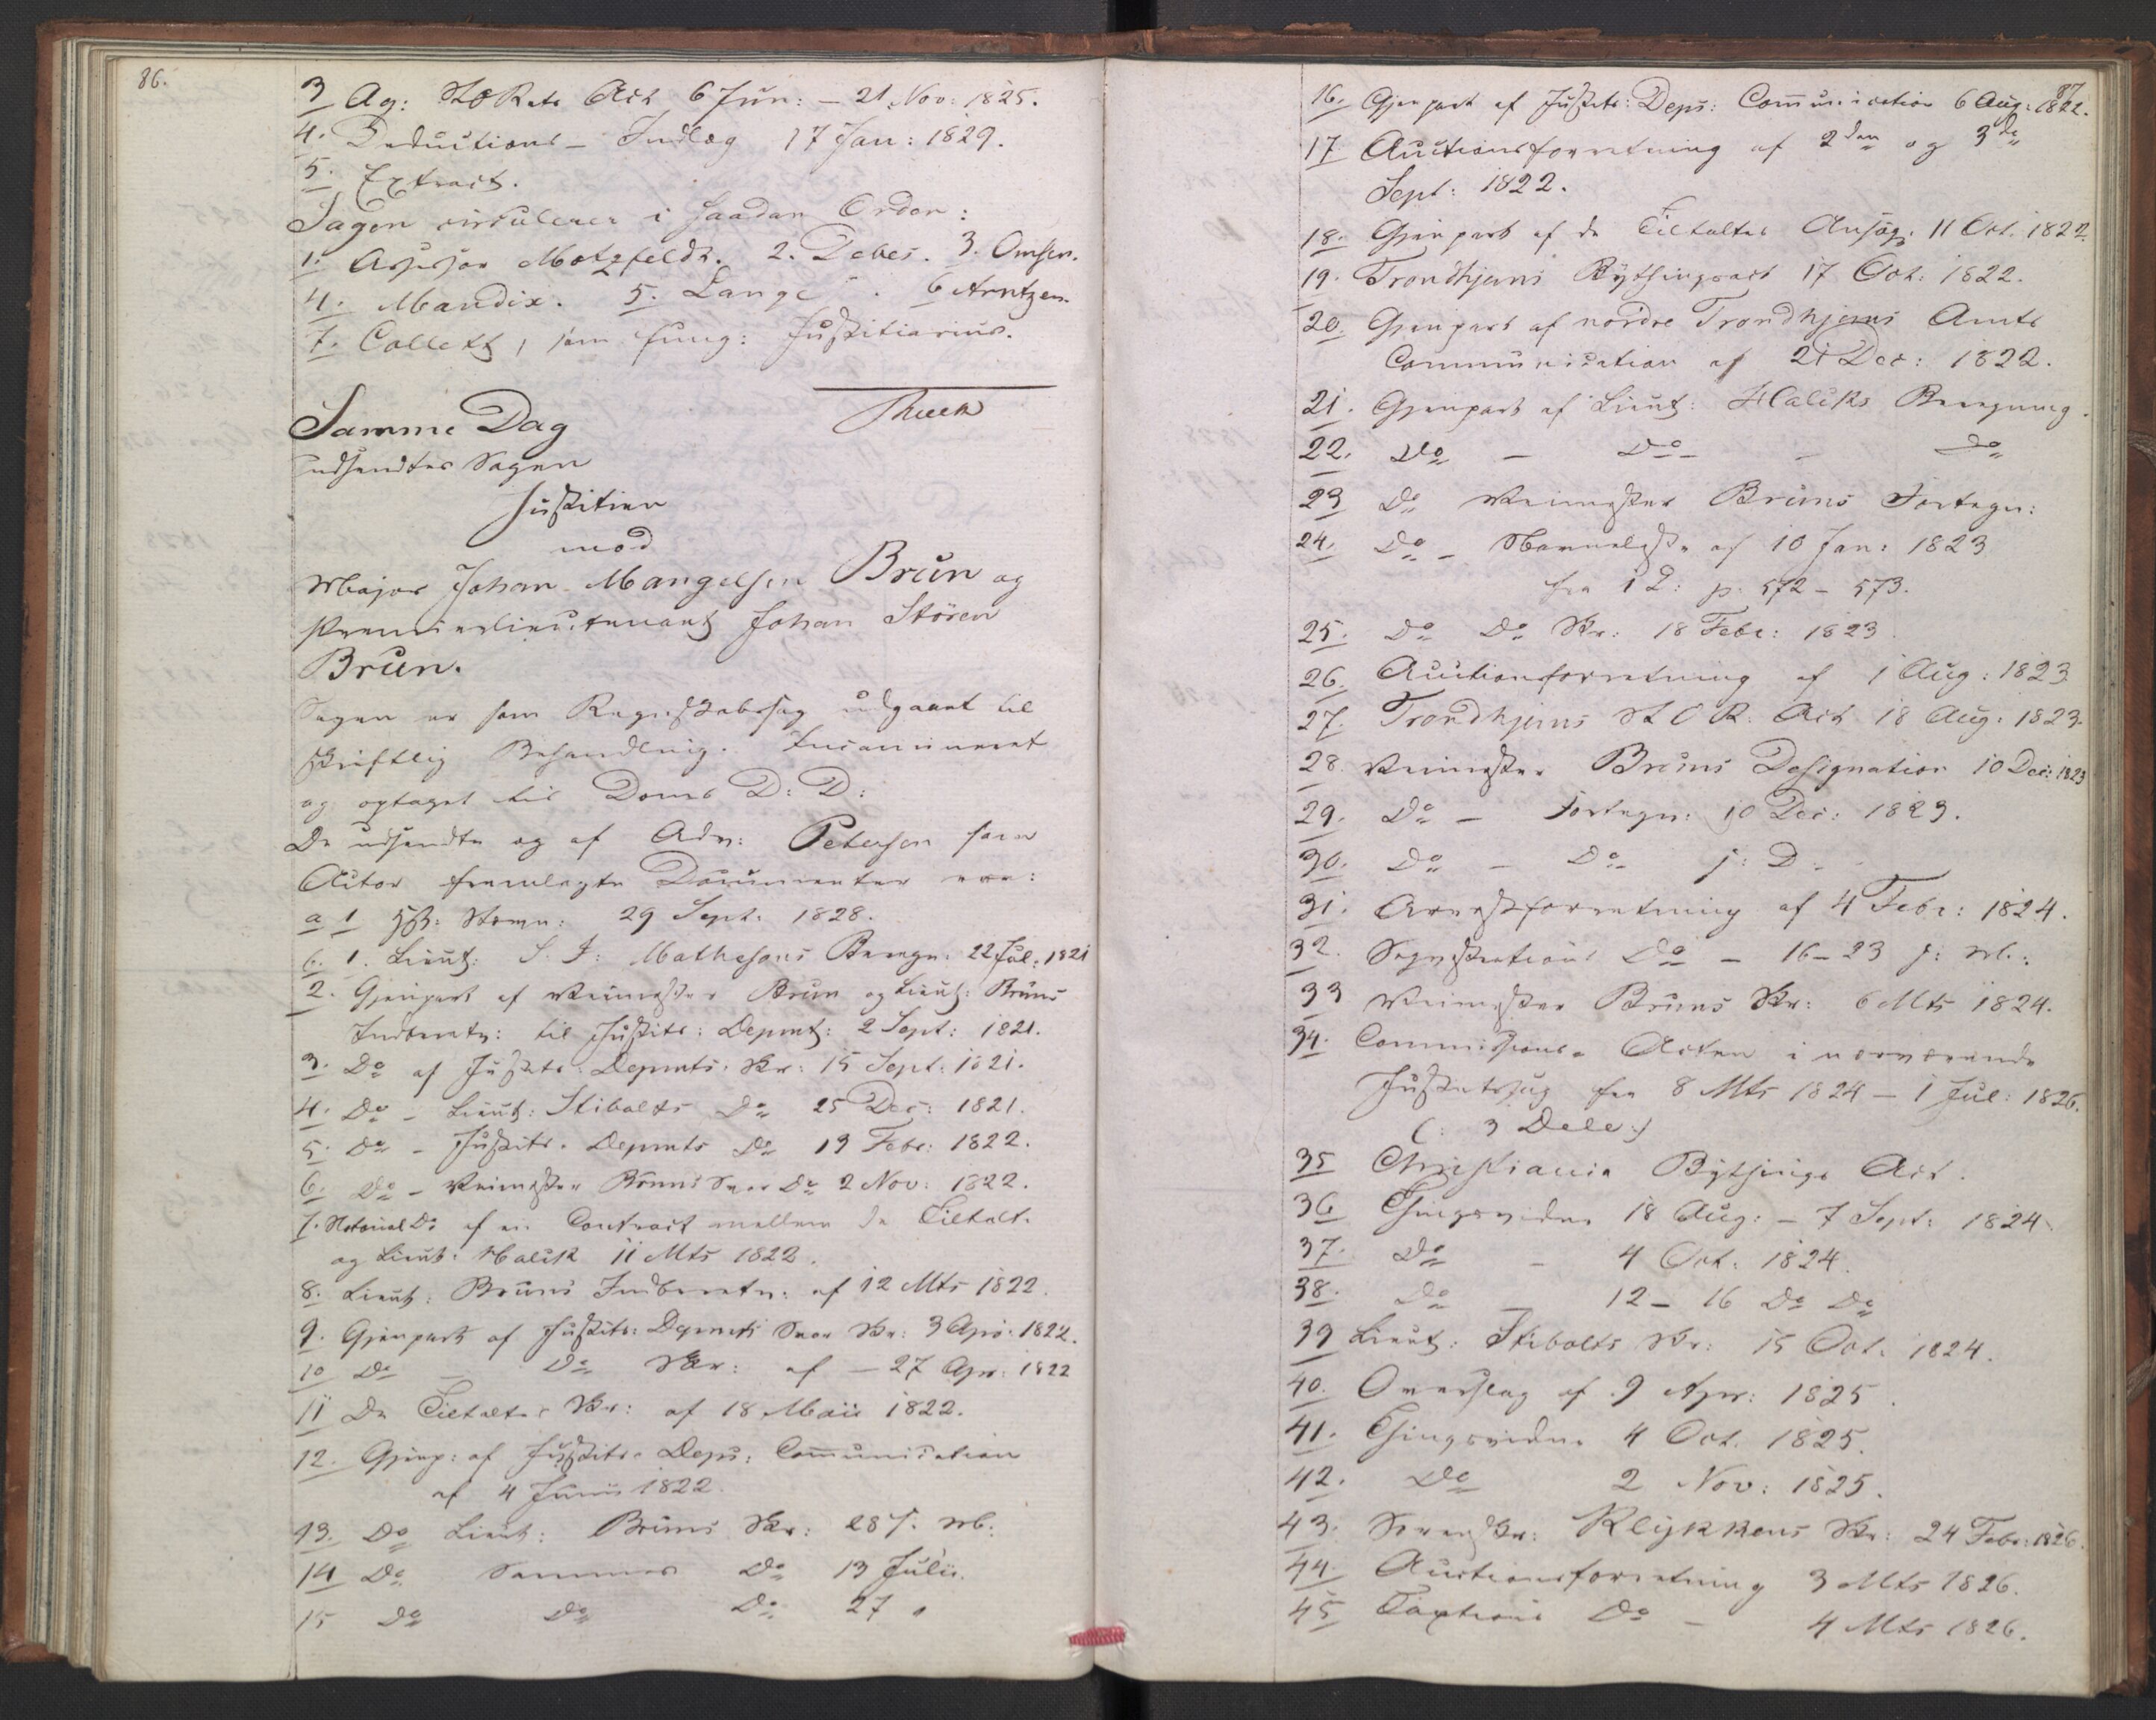 86.
3 Ag: StORets Act 6 Jun: – 21 Nov: 1825.
4. Deductions – Indlæg 17 Jan: 1829.
5. Extract.
Sagen circulerer i saadan Orden:
1. Assessor Motzfeldt. 2. Debes. 3. Omsen.
4. Mandix. 5. Lange. 6 Arntzen.
7. Collett, som fung: Justitiarius.
Samme Dag
udsendtes Sagen
Justitien
mod
Major Johan Mangelsen Brun og
Premierlieutenant Johan Stören
Brun.
Sagen er som Regnskabssag udgaaet til
skriftlig Behandling. Incamineret
og optaget til Doms D: D:
De udsendte og af Adv: Petersen som
Actor fremlagte Documenter ere:
a 1 HR: Stevn: 29 Sept: 1828.
b. 1. Lieut: Mathesons Beregn: 22 Jul: 1821
2. Gjenpart af Veimester Brun og Lieut: Bruns
Indberetn: til Justits: Depmt: 2 Sept: 1821.
3. Do af Justits: Depmts. Skr: 15 Sept: 1821.
4. Do – Lieut: Stibolts Do 25 Dec: 1821.
5. Do – Justits. Depmts Do 19 Febr: 1822.
6. Do – Veimester Bruns Svar Do 2 Nov: 1822.
7. Notorial Do af en Contract mellem de Tiltalt.
og Lieut: Halick 11 Mts 1822.
8. Lieut: Bruns Indberetn: af 12 Mts 1822.
9. Gjenpart af Justits: Depmets Svar Skr: 3 Apr: 1822.
10 Do – Do Skr: af – 27 Apr: 1822
11 De Tiltaltes Skr: af 18 Maii 1822.
12. Gjenp: af Justits. Dep: Communication
af 4 Junii 1822.
13. Do Lieut: Bruns Skr: 28 s. M.
14 Do Sammes Do 13 Julii.
15 Do Do Do 27 "
87
16. Gjenpart af Justits: Dep: Communication 6 Aug: 1822.
17. Auctionsforretning af 2den og 3de
Sept: 1822.
18. Gjenpart af de Tiltaltes Ansøg: 11 Oct. 1822.
19. Trondhjems Bythingsact 17 Oct: 1822.
20. Gjenpart af nordre Trondhjems Amts
Communication af 21 Dec: 1822.
21. Gjenpart af Lieut: Halicks Beregning.
22. Do – Do – Do
23 Do Veimester Bruns Fortegn:
24. Do – af 10 Jan: 1823
fra p. 572 – 573.
25. Do Do Skr: 18 Febr: 1823.
26. Auctionsforretning af 1 Aug: 1823
27. Trondhjems St O R. Act 18 Aug: 1823.
28. Veimester Bruns Designation 10 Dec: 1823
29. Do – Fortegn: 10 Dec: 1823.
30. Do – Do s: D.
31. Arrestforretning af 4 Febr: 1824.
32. Do – 16 – 23 s: M.
33 Veimester Bruns Skr: 6 Mts 1824.
34. Commissions Acten i nærværende
Justitssag fra 8 Mts 1824 – 1 Jul: 1826.
(: 3 Dele :)
35 Christiania Bythings Act.
36 Thingsvidne 18 Aug: – 7 Sept: 1824
37. Do – 4 Oct: 1824.
38. Do – 12 – 16 Do Do
39 Lieut: Stibolts Skr: 15 Oct. 1824.
40. Overslag af 9 Apr: 1825.
41. Thingsvidne 4 Oct. 1825.
42. Do 2 Nov: 1825.
43. Sorenskr: Klykkens Skr: 24 Febr: 1826.
44. Auctionsforretning 3 Mts 1826.
45 Taxtions Do – 4 Mts 1826.